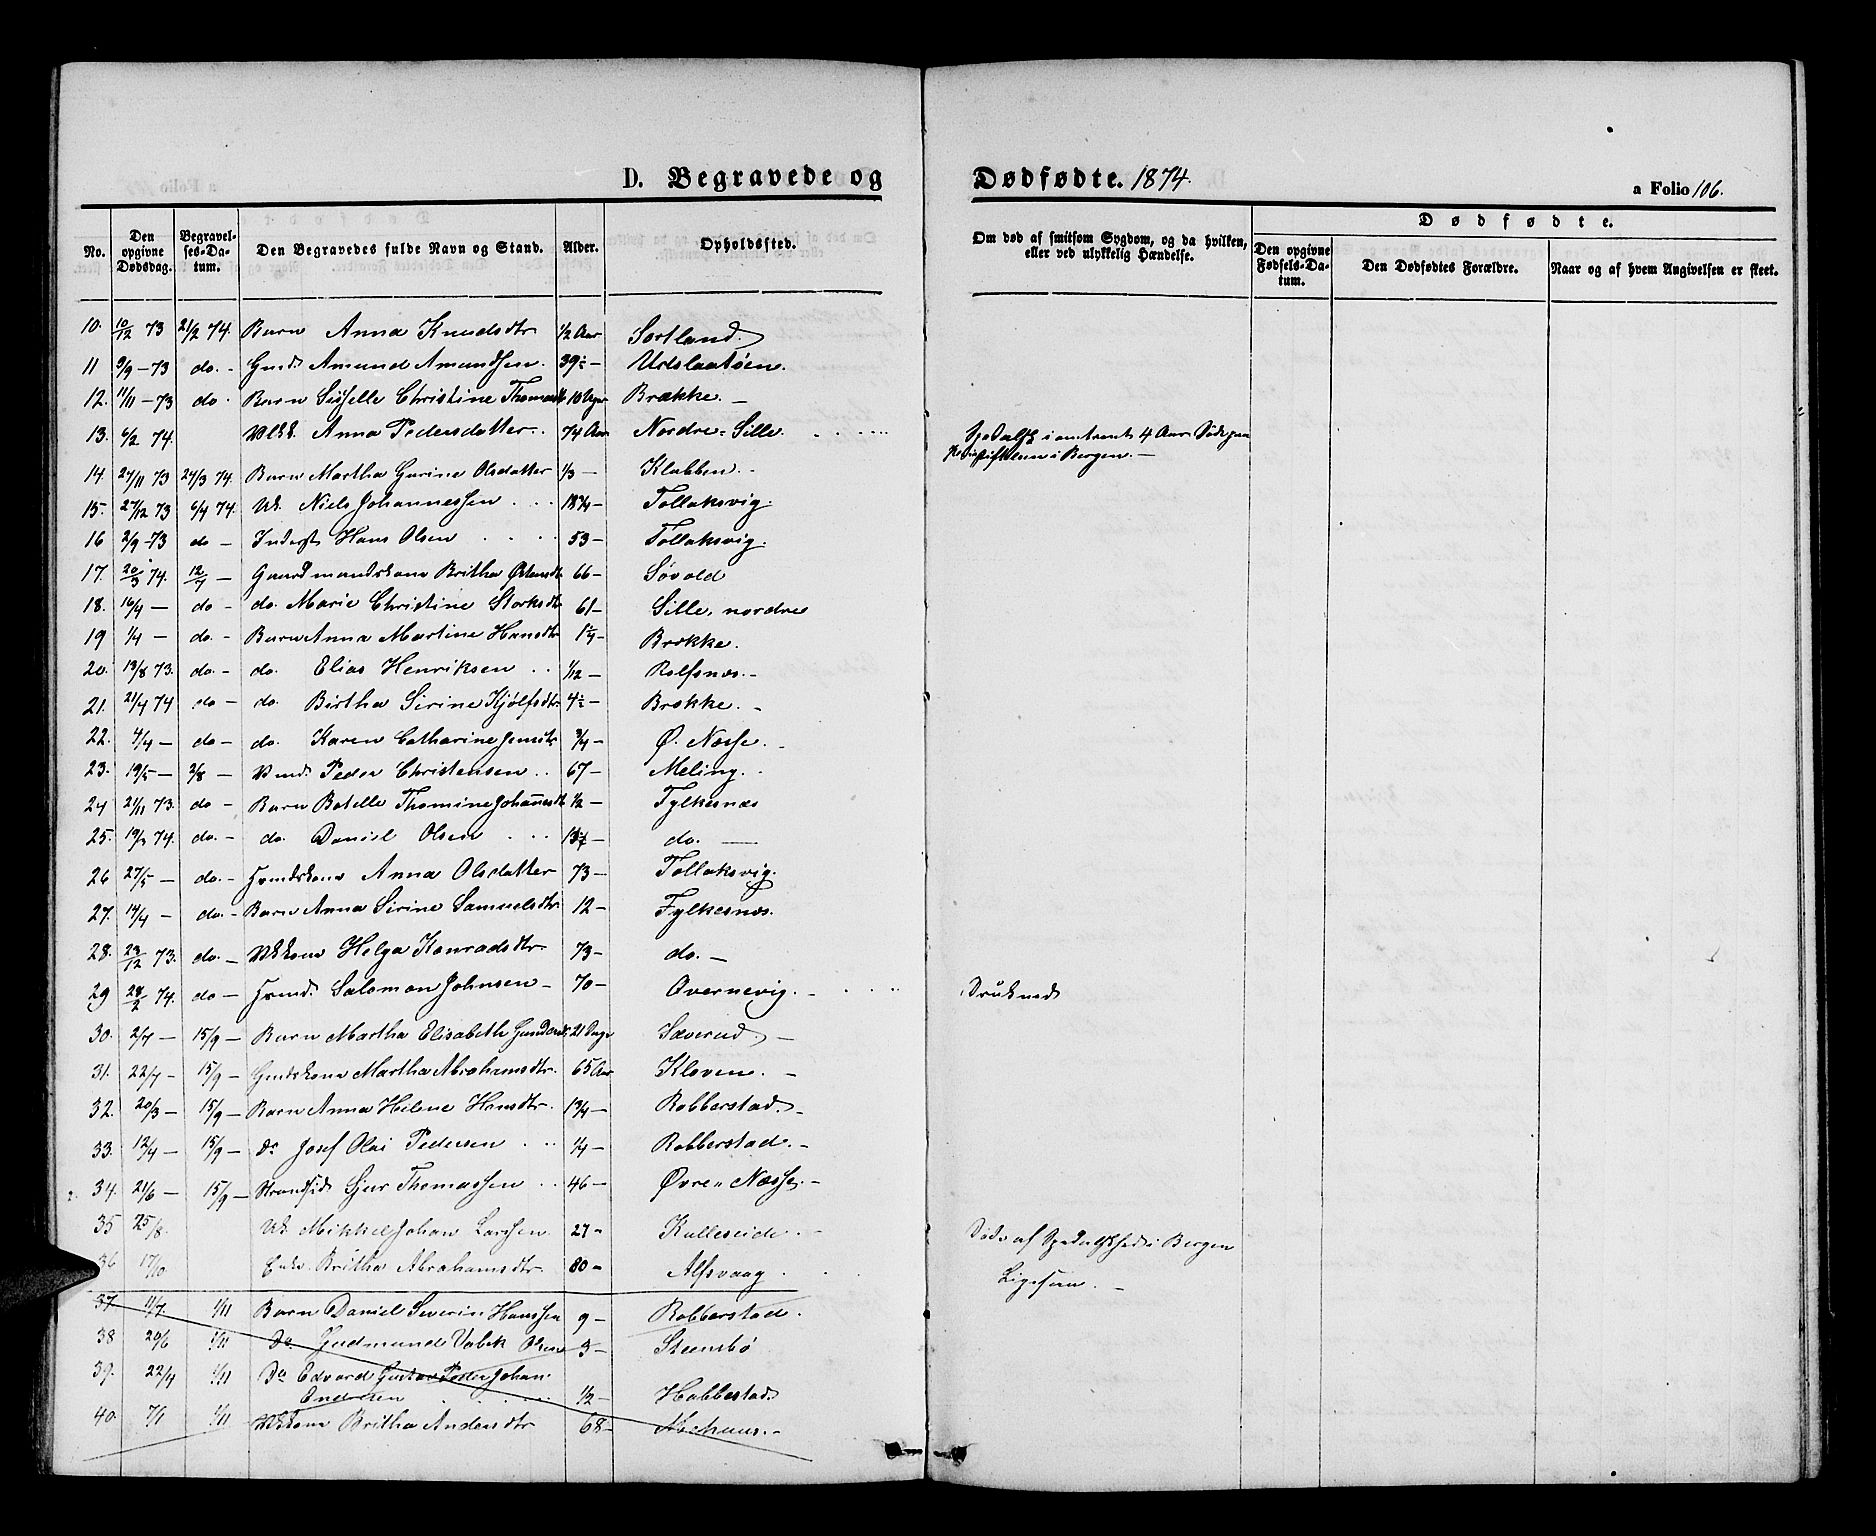 D. Begravede og Dødfødte. 1874.
a Folio 106.
No. Den opgivne Dødsdag. Begravelses-Datum. Den Begravedes fulde Navn og Stand. Alder. Opholdssted. Om død af smitsom Sygdom, og da hvilken, eller ved ulykkelig Hændelse. Dødfødte. Den opgivne Fødsels-Datum. Den Dødfødtes Forældre. Naar og af hvem Angivelsen er skeet.
10. 10/12 73 21/2 74. Barn Anna Knudsdtr 1/2 Aar Sortland.
11 9/9 - 73 do. - Gmd. Amund Amundsen. 39 - Udslaatøen.
12. 11/11 - 73 do. Barn Sisselle Christine 10 Brække. -
13. 6/2 74. Anna Pedersdatter. 74 Aar Nordre Sille. Spedalsk i omtrent 4 Aar. Døde paa Pleiestiftelsen i Bergen. -
14. 27/11 73 24/3 74. Barn Martha Gurine Olsdatter 1/3 - Klubben. -
15. 27/12 73 6/4 74. Uk. Niels Johannessen 18 3/4 - Tollaksvig.
16 2/9 - 73 do - Inderst Hans Olsen 53 - Tollaksvig.
17. 20/3 74. 12/7 - Gaardmandskone Britha 66 - Søvold
18. 16/4 - do - do. Marie Christine Storksdtr 61 - Sille, nordre
19 1/4 - do. - Barn Anna Martine Hansdtr Brokke.
20. 13/8 73. do. - do. Elias Henriksen 1/12 - Rolfsnæs. -
21. 21/4 74 do - do. Birtha Sirine Kjølfsdtr. Brokke. -
22. 4/4 - do - do. Karen Catharine Jensdtr 3/4 - Ø. Næsse. -
23. 19/5 - 2/8 - Peder Christensen 67 - Meling.
24 21/11 73. do - Barn Botelle Thomine Johannesdtr 1/2 - Fylkesnæs
25. 74. do. - do. Daniel Olsen do. -
26 27/5 - do. - Hmdskone Anna Olsdatter 73 - Tollaksvig.
27. 14/4 - do. - Barn Anna Sirine Samuelsdtr. 12 - Fylkesnæs.
28. 23/12 73. do. - Helga Konradsdtr. 73 - do. -
29 28/2 74. do - Hmd. Salomon Johnsen - 70 - Overnevig. - Druknede
30. 2/7 - 15/9 - Barn Martha Elisabeth 21 Dage Sæverud. -
31. 22/7 - 15/9 - Gmdskone Martha Abrahamsdtr. 65 Aar Kloven. -
32. 20/3 - 15/9 - Barn Anna Helene Hansdtr. 1 3/4 - Robberstad. -
33. 12/4 - 15/9 - Do Josef Olai Pedersen 1/4 - Robberstad. -
34. 21/6 - 15/9 - Strandsid. Sjur Thomassen 46 - Øvre Næsse. -
35 25/8. Uk. Mikkel Johan Larssen 27 - Kalleseide. - Døde af Spedalskhed i Bergen
36 17/10 Enke Britha Abrahamsdtr. 80 - Alfsvaag. Ligesaa. -
37. 11/7 1/11 Barn Daniel Severin Hanssen 9 - Robberstad.
38 20/6 1/11 Do. Gudmund Valik Olsen 3 - Steensbø
39. 22/4 1/11 Do Edvard Gustav Peder Johan Endresen 1/2 - Habbestad
40. 7/1 1/11 Britha Andersdtr 68 -